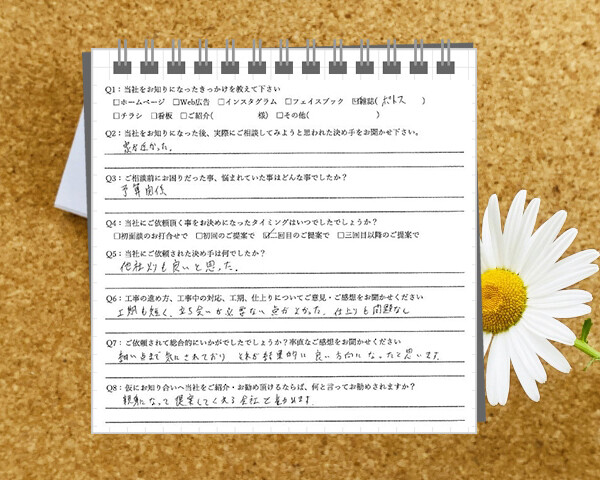 Q1：当社をお知りになったきっかけを教えて下さい
□ホームページ □Web広告 □インスタグラム □フェイスブック ☑雑誌( ポトス )
□チラシ □看板 □ご紹介( 様) □その他( )
Q2：当社をお知りになった後、実際にご相談してみようと思われた決め手をお聞かせ下さい。
家から近かった。
Q3：ご相談前にお困りだった事、悩まれていた事はどんな事でしたか？
予算関係
Q4：当社にご依頼頂く事をお決めになったタイミングはいつでしたでしょうか？
□初面談のお打合せで □初回のご提案で ☑二回目のご提案で □三回目以降のご提案で
Q5：当社にご依頼された決め手は何でしたか？
他社よりも良いと思った。
Q6：工事の進め方、工事中の対応、工期、仕上りについてご意見・ご感想をお聞かせください
工期も短く、立ち会いが必要ない点がよかった。仕上りも問題なし
Q7：ご依頼されて総合的にいかがでしたでしょうか？率直なご感想をお聞かせください
細い点まで気にされており それが結果的に良い方向になったと思います。
Q8：仮にお知り合いへ当社をご紹介・お勧め頂けるならば、何と言ってお勧めされますか？
親身になって提案してくれる会社と言われます。